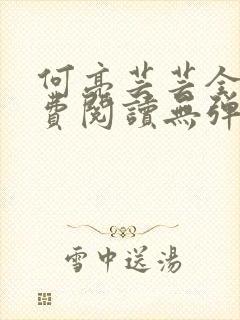 何亮芸芸全
費閱讀無彈
雪中送湯